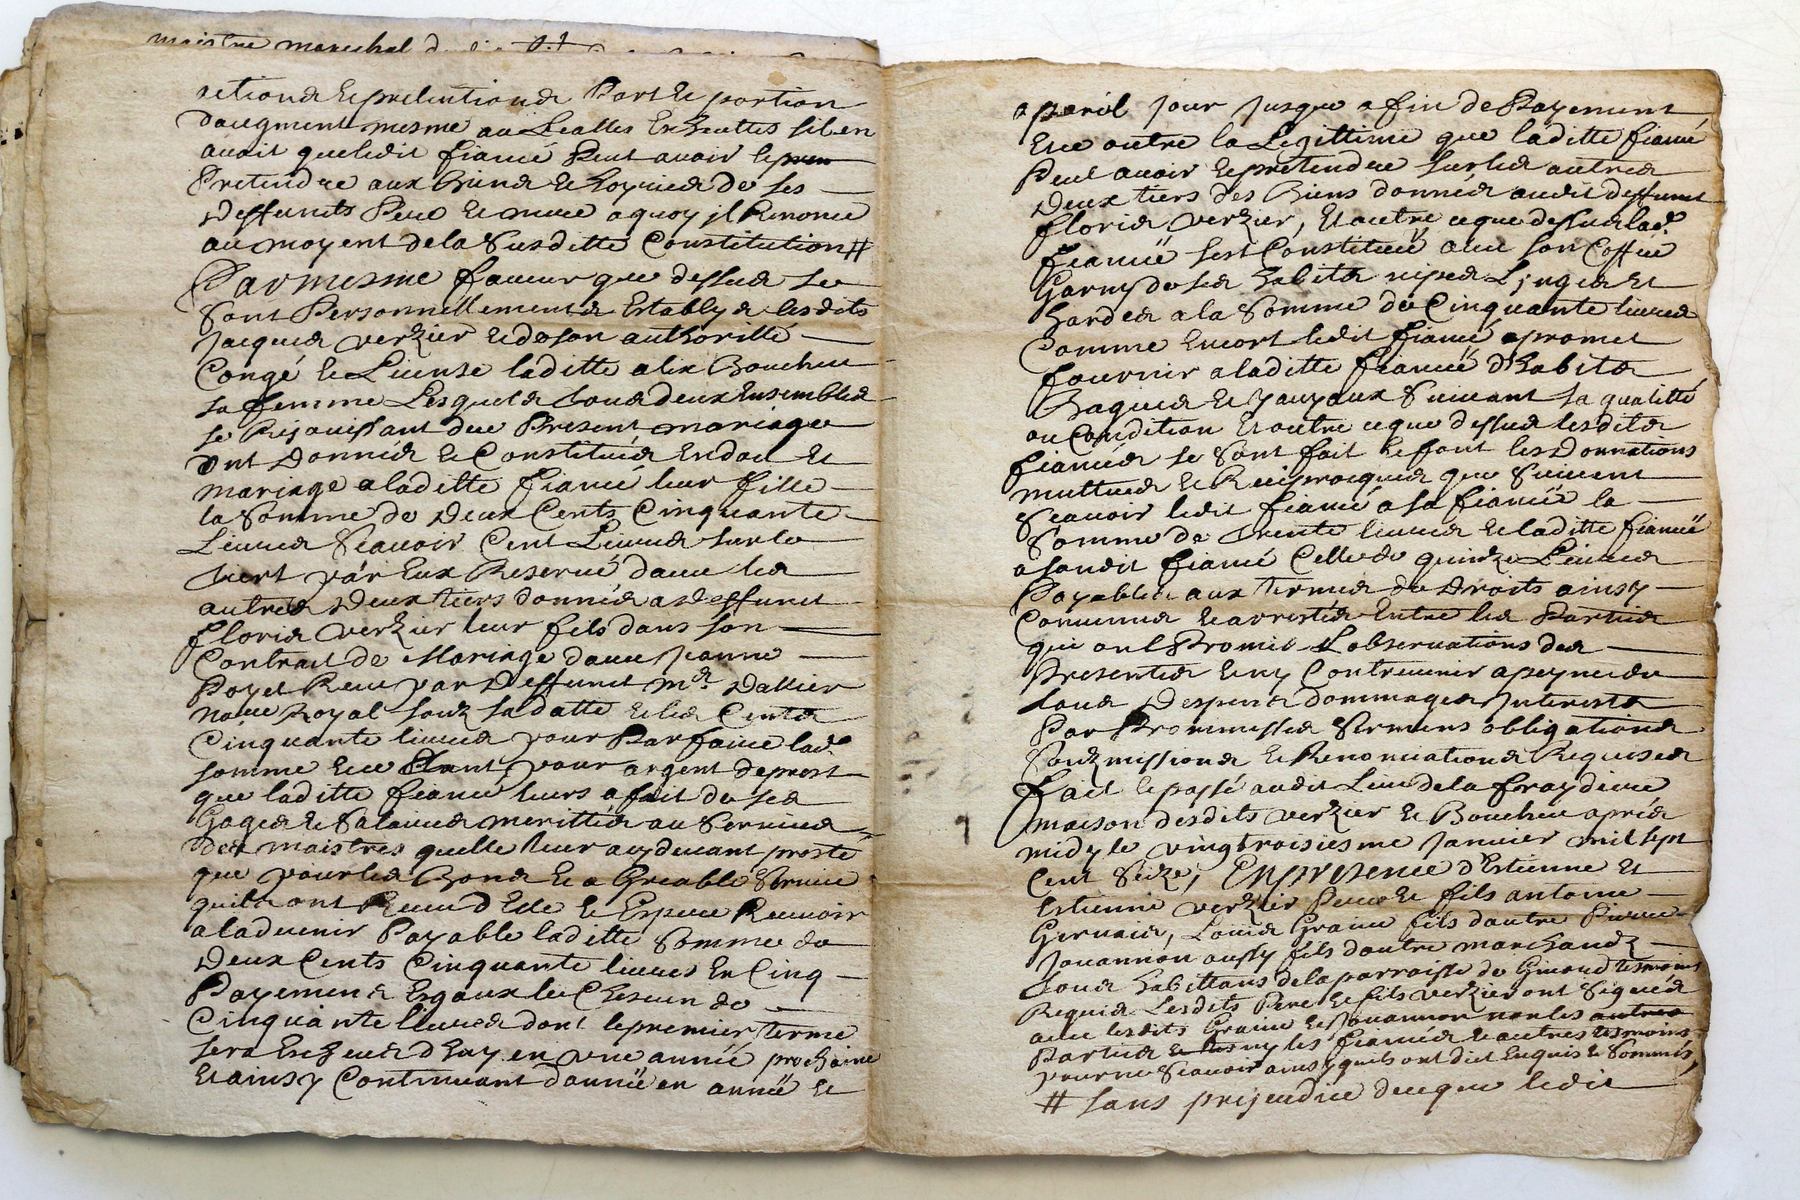 maistre mareschal
actions & pretentions Part & portion
daugment mesme au Lealles Escheuttes sil en
avoit que ledit fiancé Peut avoir & pren
Pretendre aux Biens & hoyries de ses
deffuncts Pere et mere a quoy jl Renonce
au moyent de la Susditte Constitution #
Par mesme faveur que dessus se
Sont Personnellements Establys lesdits
Jacques verzier & de son authoritté
Congé & License laditte alix Boucheu
sa femme Lesquels tous deux Ensembles
se Rejouissant du Present mariage
ont Donnés & Constitués En dot et
mariage a laditte fiancé leur fille
la Somme de Deux Cents Cinquante
Livres Scavoir Cent Livres sur le
tiert par Eux Reservé dans les
autres Deux tiers donnés a deffunct
floris verzier leur fils dans son
Contract de Mariage dave Jeanne
Poyet Receu par Deffunct Mr Dallier
no.re Royal souz sa datte & les Cents
Cinquante livres pour Parfaire lad.
somme & ce Etant pour argent de prest
que laditte fiancé leurs a fait de ses
Gages & Salaires merittés au Services
des maistres quelle leur a cy devant presté
que pour les Bons & a Greable Service
quils ont Receu d Elle & Espere Recevoir
a ladvenir Payable laditte Somme de
Deux Cents Cinquante livres En Cinq
Payements Esgaux & Chescun de
Cinquante livres dont le premier terme
sera Escheus d huy en une année prochaine
Et ainsy Continuant dannëe en annëe et
a pareil jour jusque a fin de Payement
Et ce outre la Legittime que laditte fiancé
Peut avoir & pretendre sur les autres
Deux tiers des Biens donnés audit deffunct
floris verzier, Et autre ce que dessus lad.
fiancëe sest Constituëe avec son Coffre
Garny de ses habits nipes Linges et
hardes a la Somme de Cinquante livres
Comme Encort ledit fiancé a promet
fournir a laditte fiancëe d'habits
Bagues & Jouyaux Suivant sa qualitté
ou Condition Et outre ce que dessus lesdits
fiancés se Sont fait & font les Donnations
muttues & Reciproques que Suivent
Scavoir ledit fiancé a sa fiancëe la
Somme de trente livres & laditte fiancëe
a sondit fiancé Celle de quinze Livres
Payables aux termes de Droits ainsy
Convenus & arrestés Entre les Parties
qui ont Promis L observations des
Presentes & ny Contrevenir a peyne de
tous Despens dommages Jnterests
Par Prommesses Serments obligations
Souzmissions & Renonciations Requises
fait & passé audit Lieu de la fraydiere
maison desdits verzier & Boucheu aprés
midy le vingtroisiesme Janvier mil sept
Cent Seize, En presence d'Estienne et
Estienne verzier Pere & fils antoine
Gervais, Louis Graine fils dautre Pierre
Jouannon aussy fils dautre marchandz
tous habittans de la parroisse de Giraud tesmoins
Requis Lesdits Pere & fils verzier ont Signés
avec lesdits Graine & Jouannon non les autres
Parties & les ny les fiancés & autres tesmoins
pour ne Scavoir ainsy quils ont dict Enquis & Sommés,
# sans prejeudice deceque ledit